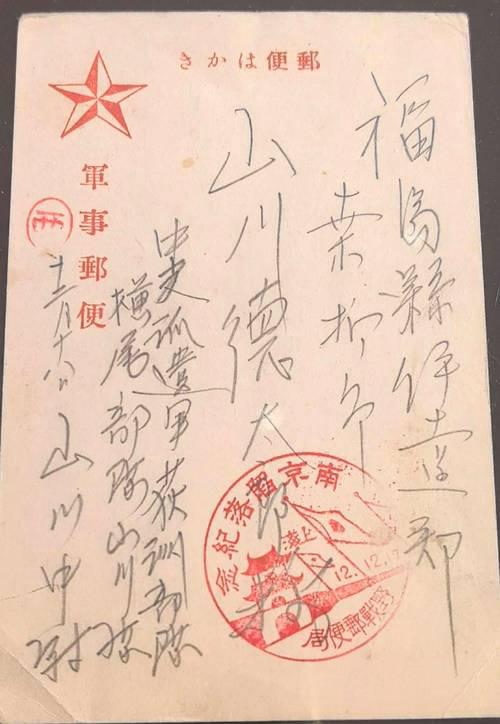 郵便はかき
軍事郵便
福島縣伊達郡
桑折町
山川德太郎様
中支派遣軍荻洲部隊
横尾部隊山川隊
十二月十八日 山川中尉
南京陷落紀念
上海
12.12.17
野戰郵便局